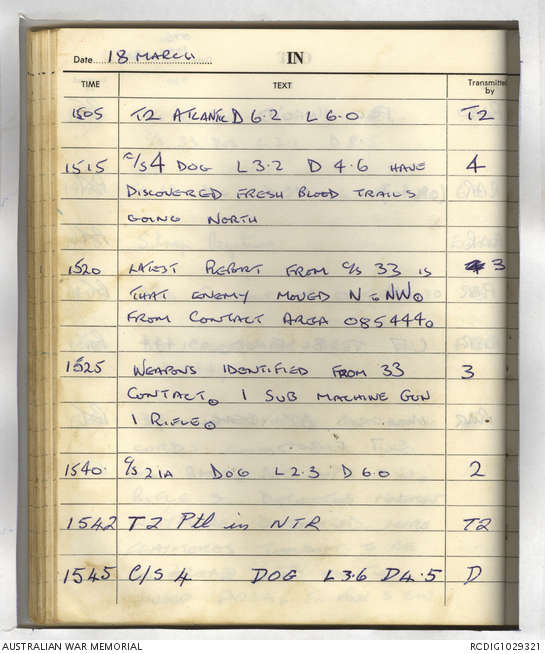 Date 18 MARCH IN
TIME TEXT Transmitte by
1505 T2 ATLANTIC D 6.2 L 6.0 T2
1515 C/S 4 DOG L 3.2 D 4.6 HAVE 4
DISCOVERED FRESH BLOOD TRAILS
GOING NORTH
1520 LATEST REPORT FROM C/S 33 IS 3
THAT ENEMY MOVED N & NW.
FROM CONTACT AREA 085444.
1525 WEAPONS IDENTIFIED FROM 33 3
CONTACT. 1 SUB MACHINE GUN
1 RIFLE.
1540 C/S 21A DOG L 2.3 D 6.0 2
1542 T2 Ptl in NTR T2
1545 C/S 4 DOG L 3.6 D 4.5 D
AUSTRALIAN WAR MEMORIAL RCDIG1029321